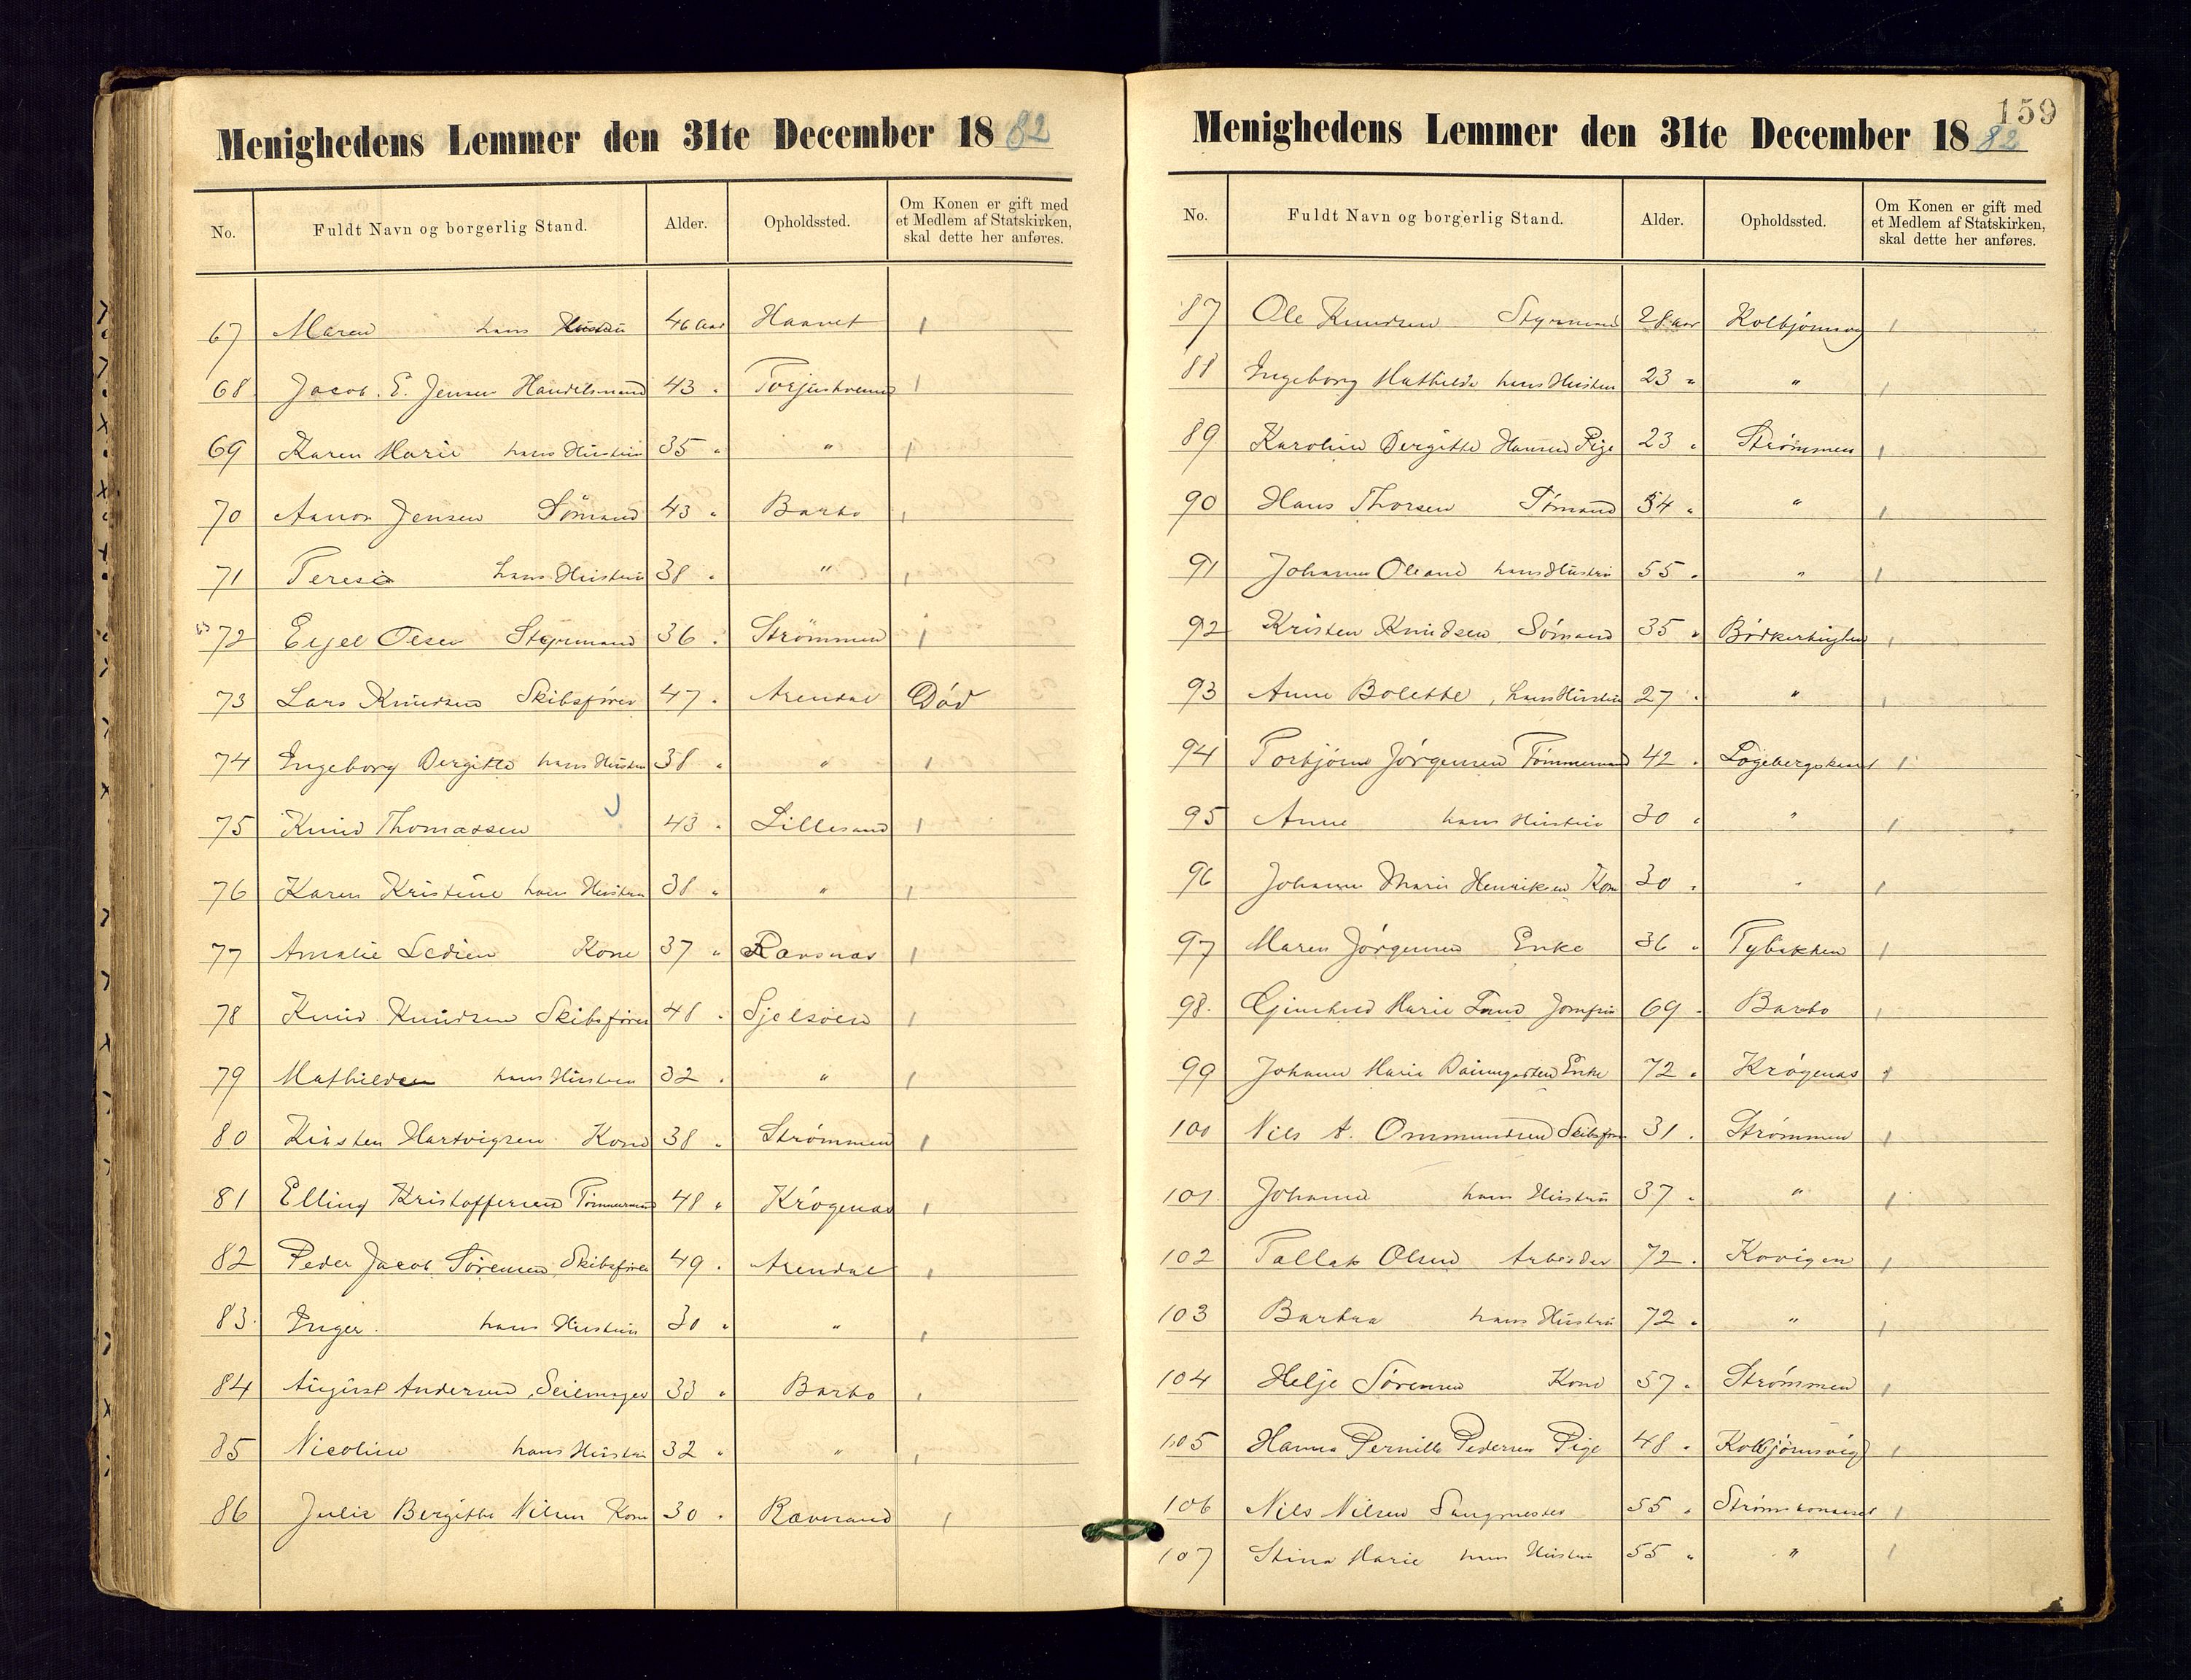 Menighedens Lemmer den 31te December 1882
No. Fuldt Navn og borgerlig Stand. Alder. Opholdssted. Om Konen er gift med et Medlem af Statskirken, skal dette her anføres.
67 Maren hans Hustru 46 Aar Haavet 1
68 Jacob. E. Jensen Handelsmand 43 " 1
69 Karen Marie hans Hustru 35 " " 1
70 Aanon Jensen Sömand 43 " Barbo 1
71 Teresia hans Hustru 38 " " 1
72 Ejel Olsen Styrmand 36 " Strömmen 1
73 Lars Knudsen Skibsfører 47 " Arendal Död
74 Ingeborg Bergitte hans Hustru 38 " " 1
75 Knud Thomassen 43 " Lillesand 1
76 Karen Kristine hans Hustru 38 " " 1
77 Amalie Ledien Kone 37 " Rævsnæs 1
78 Knud Knudsen Skibsfører 48 " Sjelsöen 1
79 Mathilde hans Hustru 32 " " 1
80 Kirsten Hartvigsen Kone 38 " Strømmen 1
81 Elling Kristoffersen Tømmermand 48 " Krøgenæs 1
82 Peder Jacob Sörensen Skibsfører 49 " Arendal 1
83. Inger. hans Hustru 30 " " 1
84 August Andersen, Seilmager 33 " Barbo 1
85 Nicoline hans Hustru 32 " " 1
86 Julie Bergitte Nilsen Kone 30 " Rævesand 1
159
Menighedens Lemmer den 31te December 1882
No. Fuldt Navn og borgerlig Stand. Alder. Opholdssted. Om Konen er gift med et Medlem af Statskirken, skal dette her anføres.
87 Ole Knudsen Styrmand 28 aar Kolbjørnsvig 1
88 Ingeborg Mathilde hans Hustru 23 " " 1
89 Karoline Bergitte Hansen Pige 23 " Strömmen 1
90 Hans Thorsen Sömand 54 " " 1
91 Johanne Oleane hans Hustru 55 " " 1
92 Kristen Knudsen Sømand 35 " 1
93 Anne Bolette, hans Hustru 27 " " 1
94 Torbjörn Jörgensen Tømmermand 42 " 1
95 Anne hans Hustru 30 " " 1
96 Johanne Marie Henriksen Kone 30 " " 1
97 Maren Jörgensen Enke 36 " Tybakken 1
98. Marie Lund Jomfru 69 " Barbo 1
99 Johanne Marie Baumgarten Enke 72 " Krøgenæs 1
100 Nils A. Ommundsen Skibsfører 31 " Strømmen 1
101 Johanne hans Hustru 37 " " 1
102 Tallak Olsen Arbeider 72 " Kovigen 1
103 Barbra hans Hustru 72 " " 1
104 Helje Sørensen Kone 57 " Strømmen 1
105 Hanna Pernille Pedersen Pige 48 " Kolbjørnsvig 1
106 Nils Nilsen Saugmester 55 " 1
107 Stina Marie hans Hustru 55 " " 1